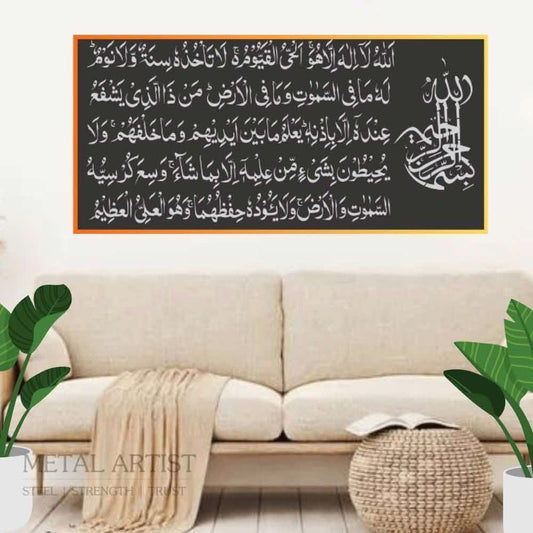 بسم الله الرحمن الرحيم
اَللّٰهُ لَاۤ اِلٰهَ اِلَّا هُوَۚ اَلْحَیُّ الْقَیُّوْمُ ەۚ لَا تَاْخُذُهٗ سِنَةٌ وَّلَا نَوْمٌؕ
لَهٗ مَا فِی السَّمٰوٰتِ وَمَا فِی الْاَرْضِؕ مَنْ ذَا الَّذِیْ یَشْفَعُ
عِنْدَهٗۤ اِلَّا بِاِذْنِهٖؕ یَعْلَمُ مَا بَیْنَ اَیْدِیْهِمْ وَمَا خَلْفَهُمْۚ وَلَا
یُحِیْطُوْنَ بِشَیْءٍ مِّنْ عِلْمِهٖۤ اِلَّا بِمَا شَآءَۚ وَسِعَ كُرْسِیُّهُ
السَّمٰوٰتِ وَالْاَرْضَۚ وَلَا یَـُٔوْدُهٗ حِفْظُهُمَاۚ وَهُوَ الْعَلِیُّ الْعَظِیْمُ
METAL ARTIST
STEEL | STRENGTH | TRUST